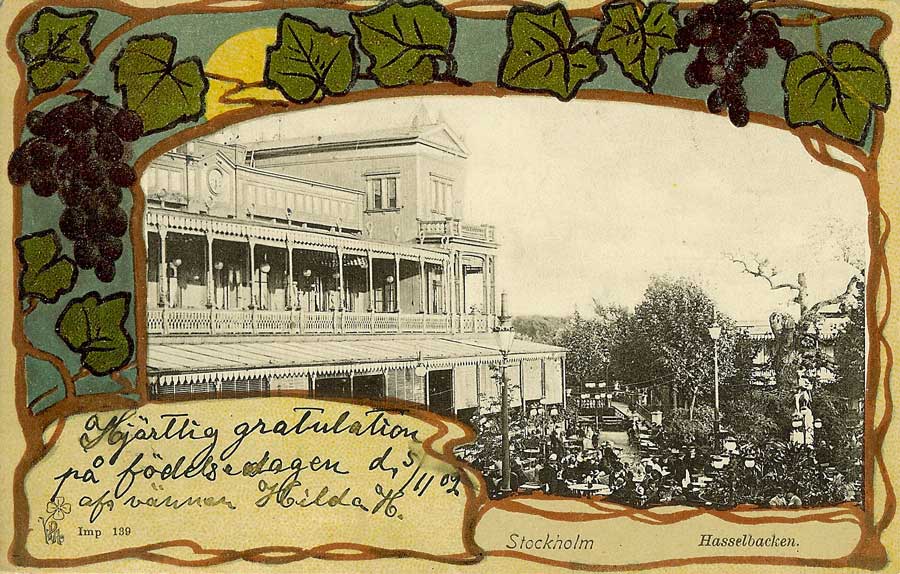 Hjärtlig gratulation
på födelsedagen d. 5/11 02
af vännen Hilda K.
Imp 139
Stockholm
Hasselbacken.